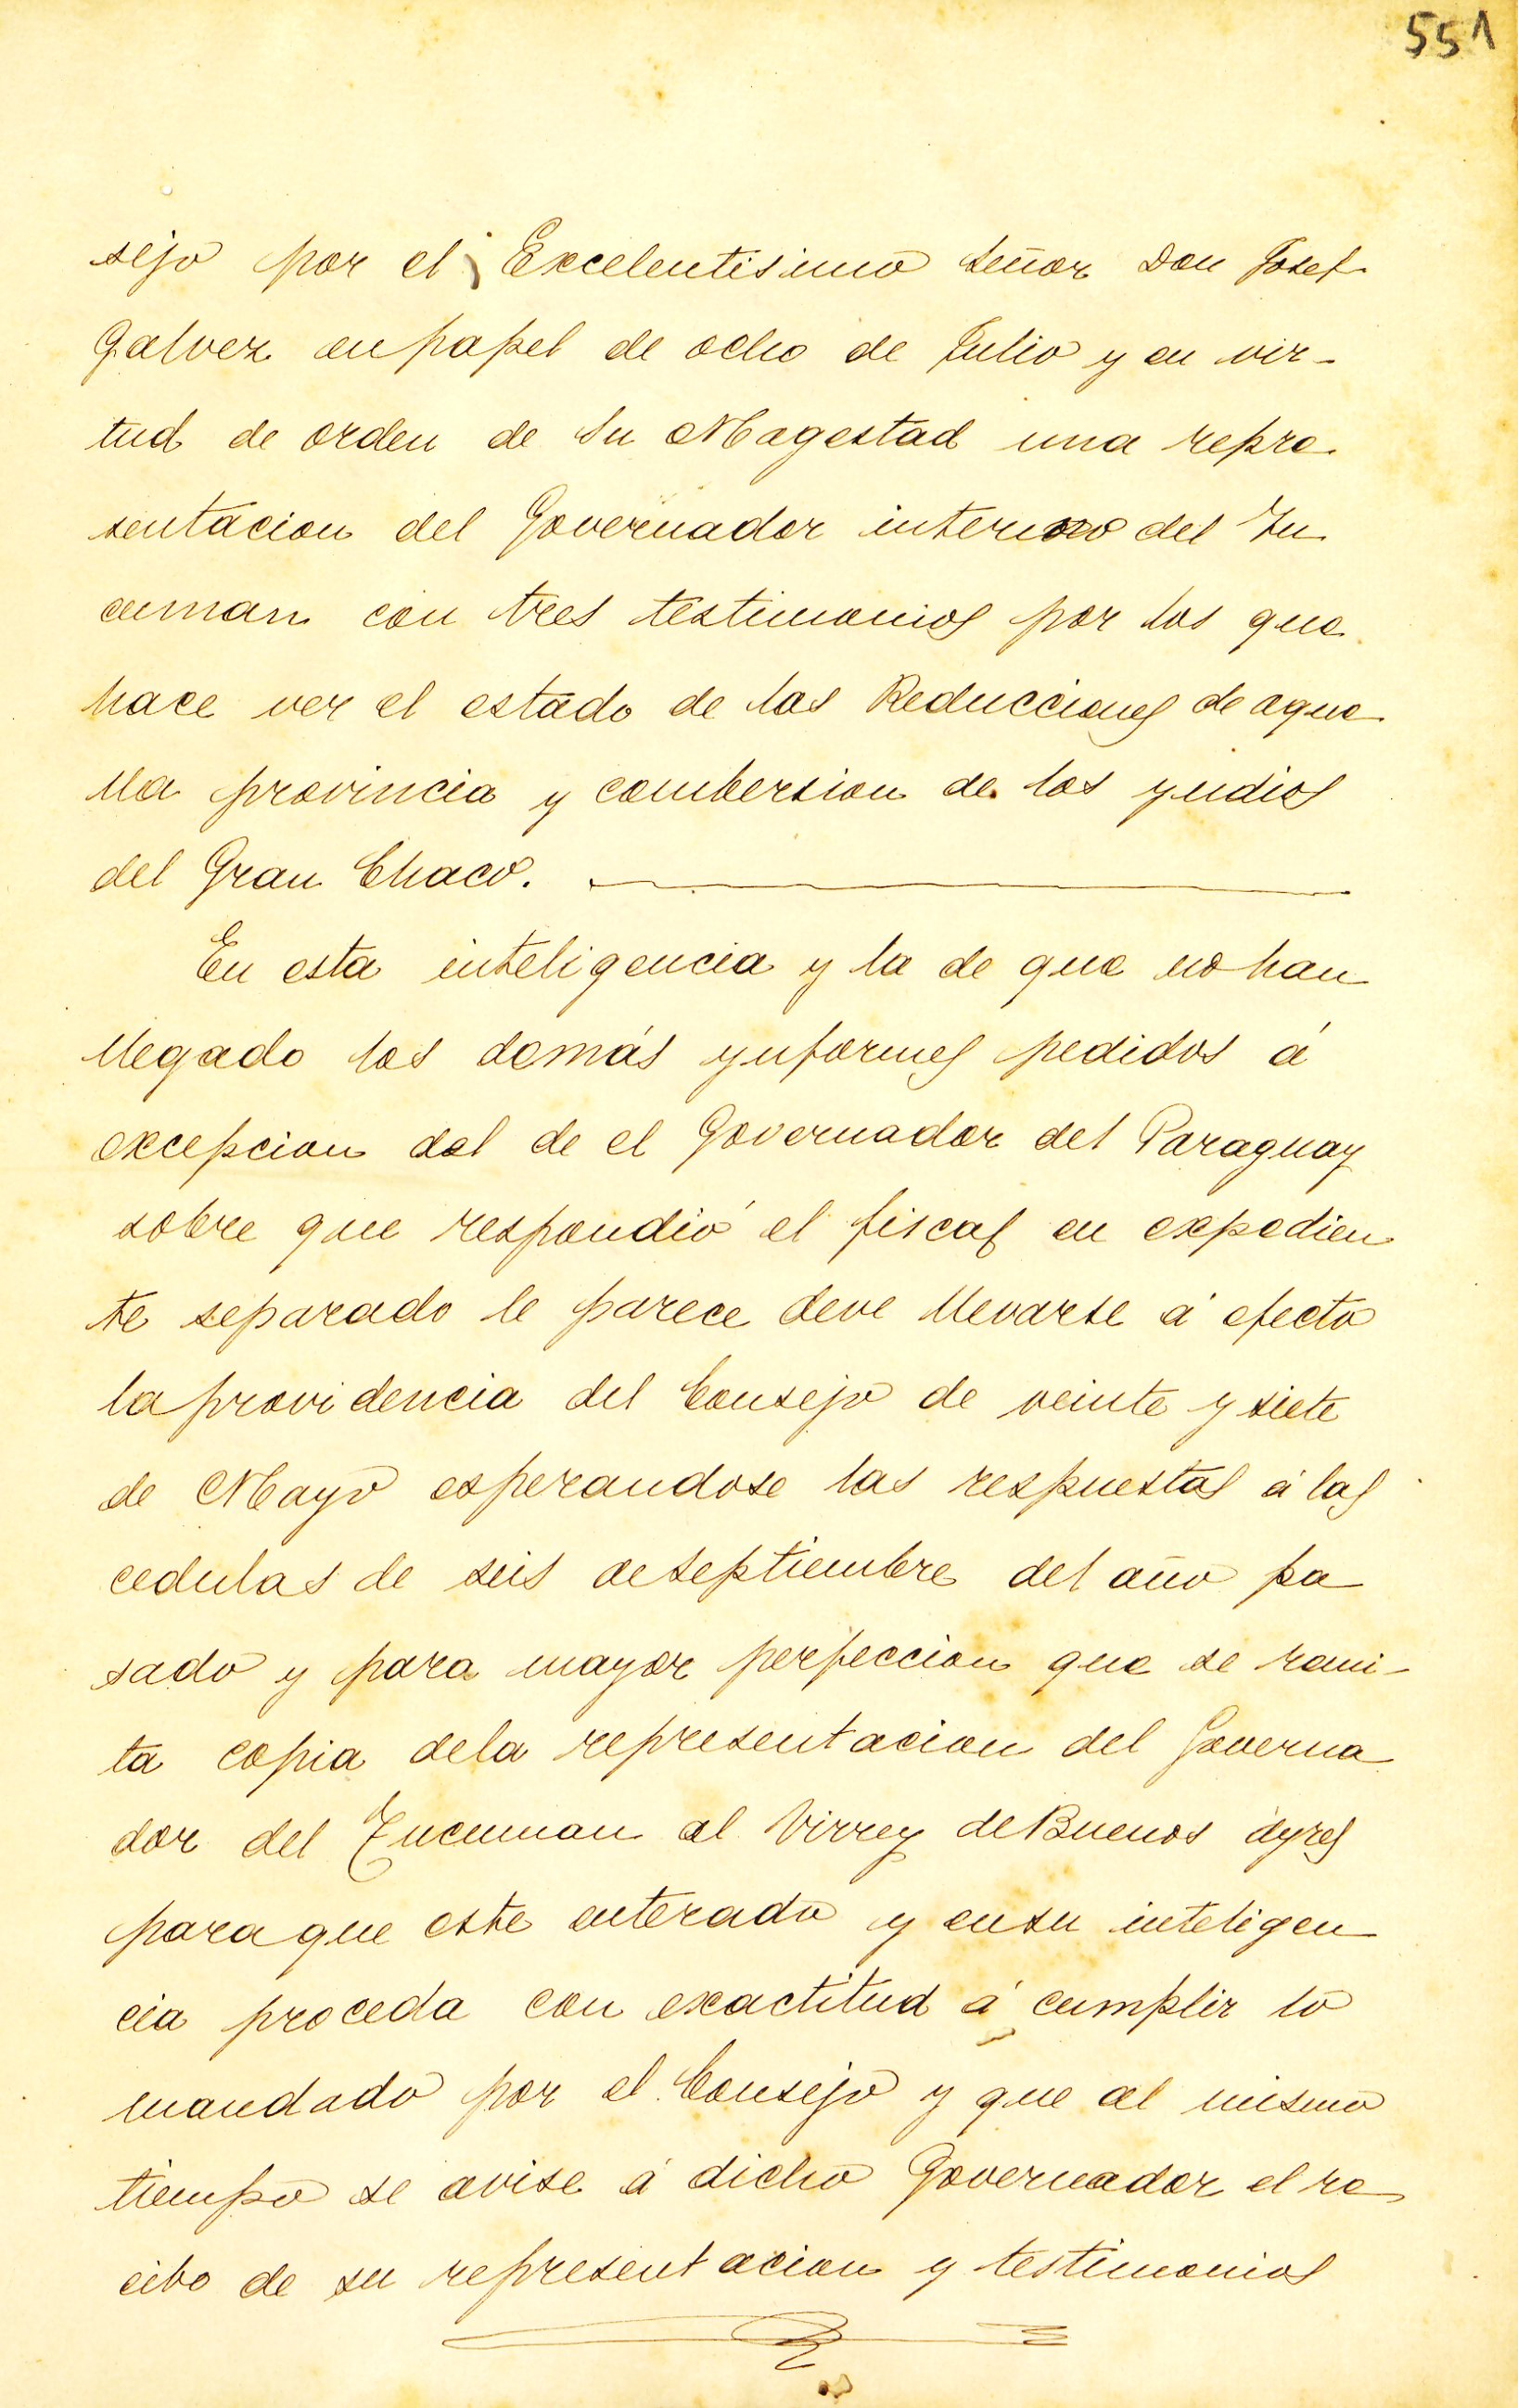 551
sejo por el Excelentisimo Señor Don Josef
Galvez en papel de ocho de Julio y en vir-
tud de orden de Su Magestad una repre
sentacion del Governador interino del Tu
cuman con tres testimonios por los que
hace ver el estado de las Reducciones de aque
lla provincia y combersion de los yndios
del Gran Chaco.
En esta inteligencia y la de que no han
llegado los demás ynformes pedidos á
excepcion del de el Governador del Paraguay
sobre que respondió el fiscal en expedien
te separado le parece deve llevarse á efecto
la providencia del Consejo de veinte y siete
de Mayo esperandose las respuestas á las
cedulas de seis de Septiembre del año pa
sado y para mayor perfeccion que se remi-
ta copia dela representacion del Governa
dor del Tucuman al Virrey de Buenos ayres
para que este enterado y ensu inteligen
cia proceda con exactitud á cumplir lo
mandado por el Consejo y que al mismo
tiempo se avise á dicho Governador el re
cibo de su representacion y testimonios